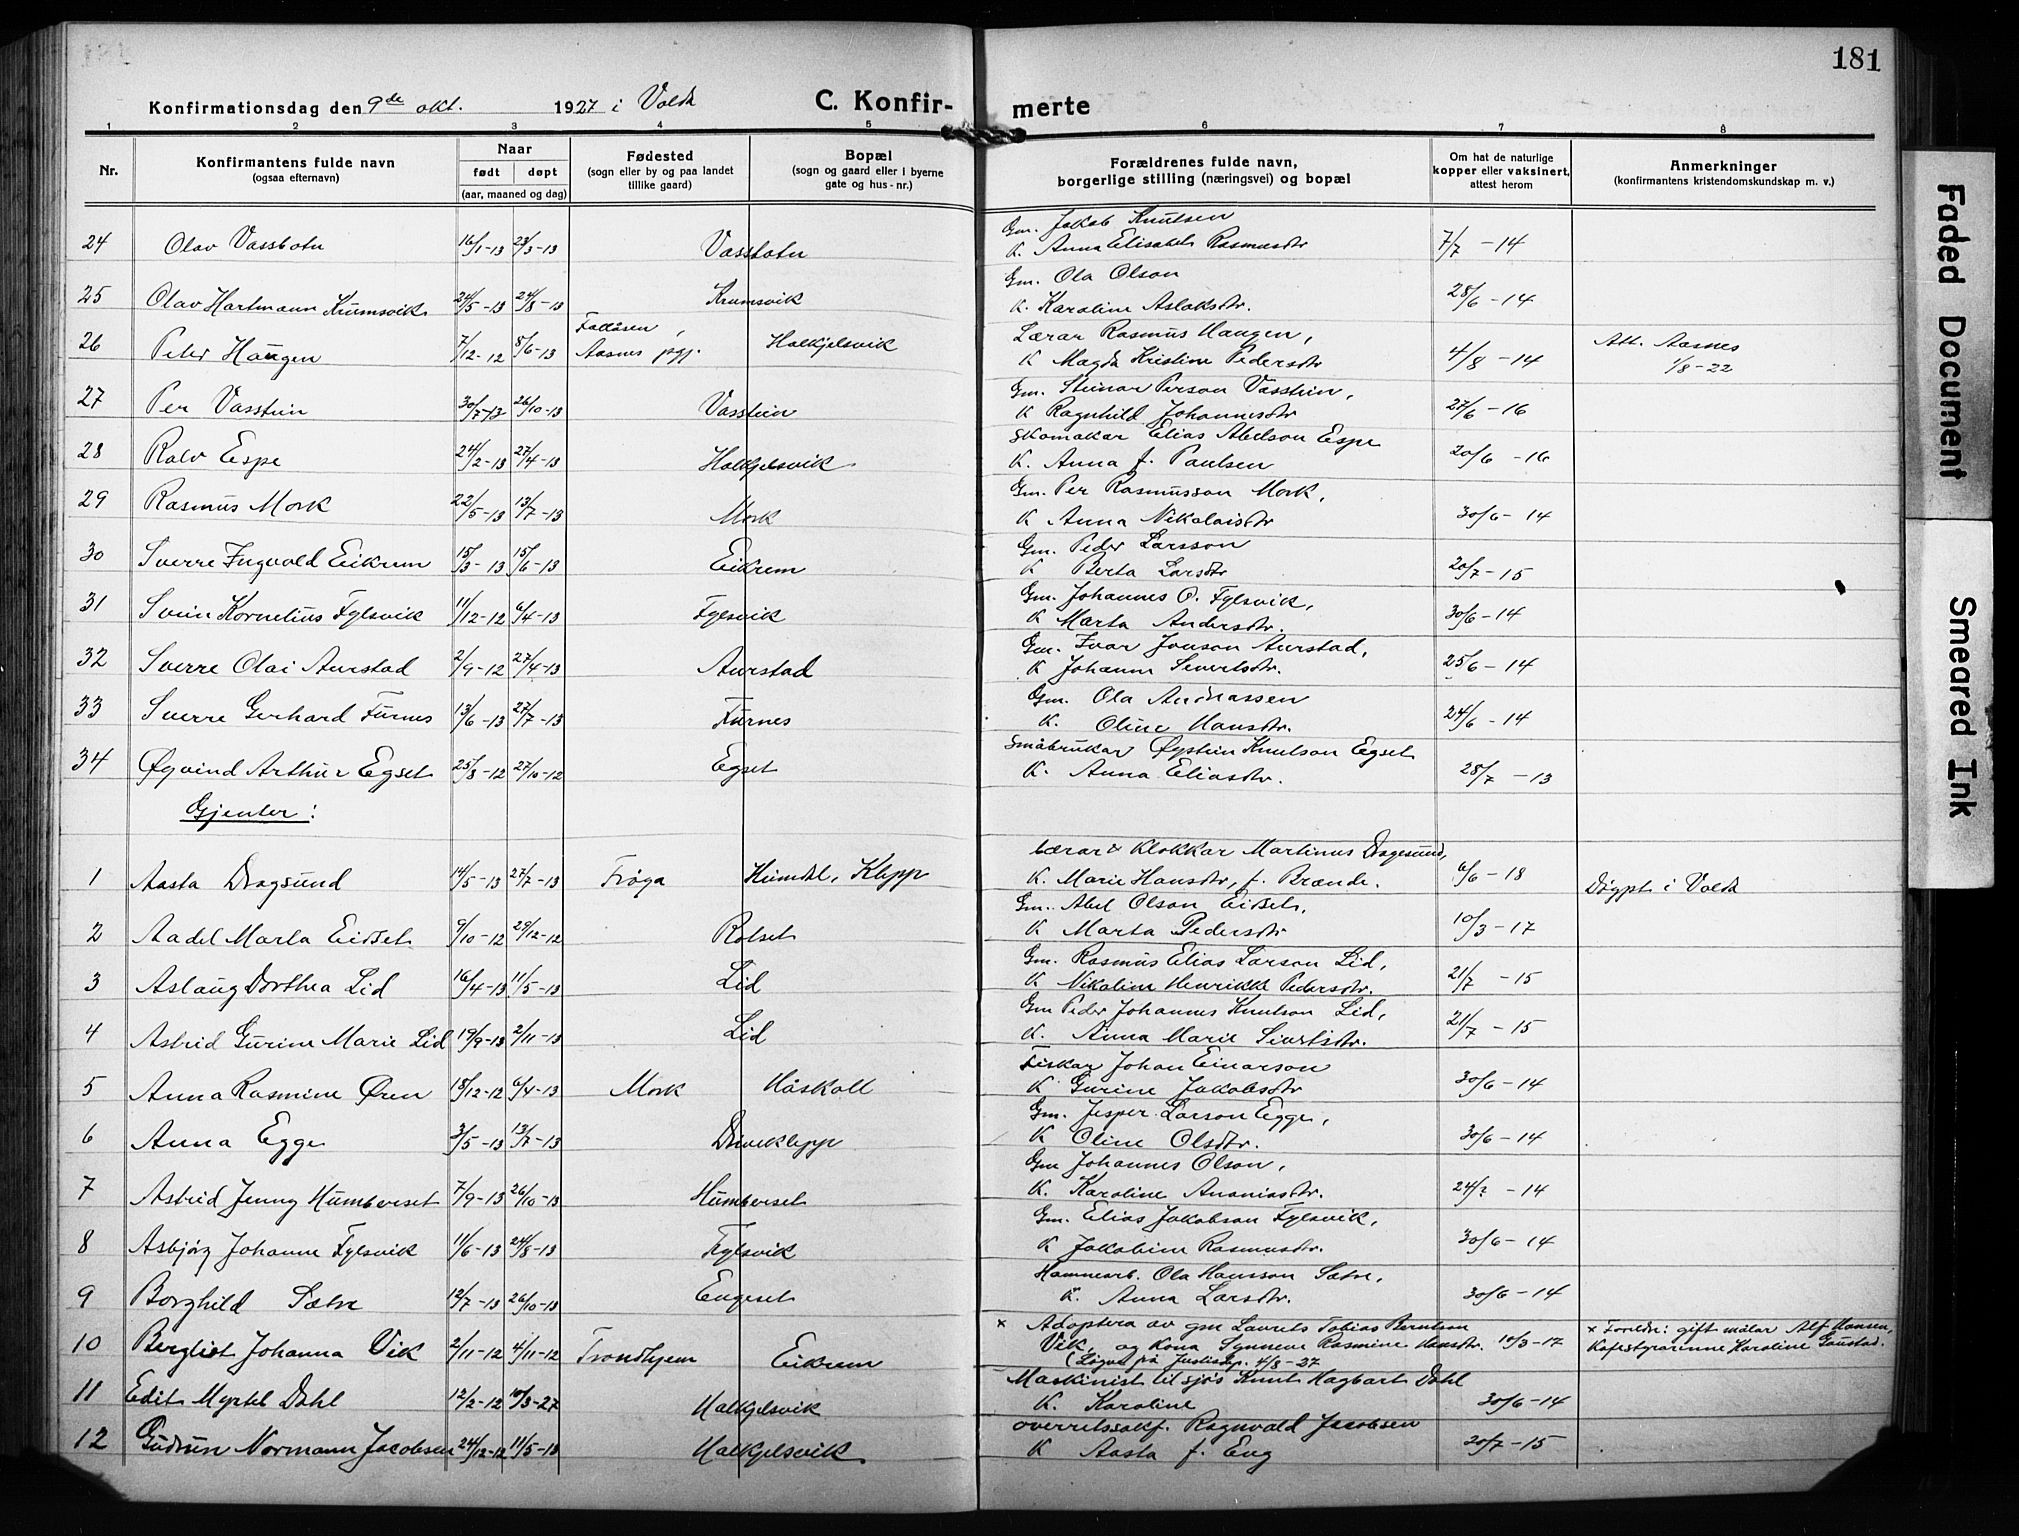 181
Konfirmationsdag den 9de okt. 1927 i Volda C. Konfir- merte
1 2 3 4 5 6 7 8
Nr. Konfirmantens fulde navn (ogsaa efternavn) Naar født døpt (aar, maaned og dag) Fødested (sogn eller by og paa landet tillike gaard) Bopæl (sogn og gaard eller i byerne gate og hus-nr.) Forældrenes fulde navn, borgerlige stilling (næringsvei) og bopæl Om hat de naturlige kopper eller vaksinert, attest herom Anmerkninger (konfirmantens kristendomskundskap m. v.)
Gm. Jakob Knutsen
24 Olav Vassbotn 16/1-13 23/3-13 Vassbotn K. Anna Elisabet Rasmusdtr 7/7 -14
Gm. Ola Olson
25 Olav Hartmann Krumsvik 24/5-13 24/8-13 Krumsvik K. Karoline Aslaksdtr. 28/6 -14
Lærar Rasmus Haugen,
26 Peter Haugen 7/12-12 8/6-13 Aasnes pgj. Halkjelsvik K Magda Kristine Pedersdtr 4/8 -14 Att. Aasnes 1/8-22
Gm. Steinar Person Vasstein,
27 Per Vasstein 30/7-13 26/10-13 Vasstein K Ragnhild Johannesdtr 27/6 -16
Skomakar Elias Abelson Espe
28 Ralv Espe 24/2-13 27/4-13 Halkjelsvik K. Anna f. Paulsen 20/6 -16
Gm. Per Rasmusson Mork,
29 Rasmus Mork 22/5-13 13/7-13 Mork K Anna Nikolaisdtr 30/6-14
Gm. Peder Larsson
30 Sverre Ingvald Eikrem 15/3-13 15/6-13 Eikrem K Berta Larsdtr 20/7-15
Gm. Johannes O. Fylsvik,
31 Svein Kornelius Fylsvik 11/12-12 6/4-13 Fylsvik K Marta Andersdtr. 30/6-14
Gm. Ivar Jonson Aurstad,
32 Sverre Olai Aurstad 2/9-12 27/4-13 Aurstad K Johanne Sivertsdtr. 25/6-14
Gm. Ola Andreassen
33 Sverre Gerhard Furnes 13/6-13 27/7-13 Furnes K. Oline Hansdtr. 24/6-14
Småbrukar Øystein Knutson Egset
34 Øyvind Arthur Egset 25/8-12 27/10-12 Egset K. Anna Eliasdtr. 28/7 -13
Gjenter:
Lærar & Klokkar Martinus Dragesund,
1 Aasta Dragsund 14/5-13 27/7-13 Frøga Humdal, Klepp K. Marie Hansdtr, f. Brande. 6/6 -18 Døypt i Volda
Gm. Abel Olson Eidset,
2 Aadel Marta Eidset 9/10-12 29/12-12 Rotset K Marta Pedersdtr 10/3-17
Gm. Rasmus Elias Larson Lid,
3 Aslaug Dorthea Lid 16/4-13 11/5-13 Lid K Nikoline Henrikke Pedersdtr. 21/7 -15
Gm Peder Johannes Knutson Lid,
4 Astrid Gurine Marie Lid 19/9-13 2/11-13 Lid K. Anna Marie Sivertsdtr. 21/7 -15
Fiskar Johan Einarson
5 Anna Rasmine Øren 18/12-12 6/4-13 Mork Håskoll K Gurine Jakobsdtr 30/6-14
Gm. Jesper Larson Egge,
6 Anna Egge 3/5-13 13/7-13 Driveklepp K Oline Olsdtr. 30/6-14
Gm Johannes Olson,
7 Astrid Jenny Humberset 7/9-13 26/10-13 Humberset K. Karoline Ananiasdtr. 24/7 -14
Gm. Elias Jakobson Fylsvik,
8 Asbjørg Johanne Fylsvik 11/6-13 24/8-13 Fylsvik K Jakobine Rasmusdtr. 30/6-14
Hamnearb. Ola Hansson Sætre,
9 Borghild Sætre 12/7-13 26/10-13 Engeset K. Anna Larsdtr. 30/6-14
× Adoptera av gm Laurits Tobias Berntson × Foreldr: gift målar Alf Hansen,
10 Bergliot Johanna Vik 2/11-12 4/11-12 Trondhjem Eikrem Vik, og kona Synneve Rasmine Hansdtr. 10/3-17 Kafestyrarinne Karoline Gaustad.
Justisdep. 4/8-27
Maskinist til sjøs Knut Hagbart Dahl
11 Edit Myrtel Dahl 12/2-12 10/3-27 Halkjelsvik K. Karoline 30/6-14
Overretssakf. Ragnvald Jacobsen
12 Gudrun Normann Jacobsen 24/12-12 11/5-13 Halkjelsvik K Aasta f. Eng 20/7-15
Faded Document
Smeared Ink